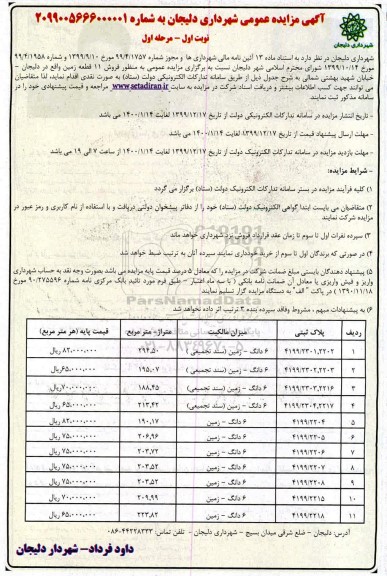 آگهی مزایده عمومی شهرداری دلیجان به شماره ۲۰۹۹۰۰۵۶۶۶۰۰۰۰۰۱
نوبت اول - مرحله اول
شهرداری دلیجان
شهرداری دلیجان در نظر دارد به استناد ماده ۱۳ آئین نامه مالی شهرداری ها و مجوز شماره ۹۹/۴/۱۷۵۷ مورخ ۱۳۹۹/۹/۱۰ و شماره ۹۹/۴/۱۹۵۸
مورخ ۱۳۹۹/۱۰/۱۴ شورای محترم اسلامی شهر دلیجان نسبت به برگزاری مزایده عمومی به منظور فروش ۱۱ قطعه زمین واقع در دلیجان -
خیابان شهید بهشتی شمالی به شرح جدول ذیل از طریق سامانه تدارکات الکترونیکی دولت (ستاد) به صورت نقدی اقدام نماید، لذا متقاضیان
می توانند جهت کسب اطلاعات بیشتر و دریافت اسناد شرکت در مزایده به سایت www.setadiran.ir مراجعه و قیمت پیشنهادی خود را در
سامانه مذکور ثبت نمایند.
- تاریخ انتشار مزایده در سامانه تدارکات الکترونیکی دولت از تاریخ ۱۳۹۹/۱۲/۱۷ لغایت ۱۴۰۰/۱/۱۴ می باشد
- مهلت ارسال پیشنهاد قیمت از تاریخ ۱۳۹۹/۱۲/۱۷ لغایت ۱۴۰۰/۱/۱۴ می باشد.
- مهلت بازدید مزایده در سامانه تدارکات الکترونیک دولت از تاریخ ۱۳۹۹/۱۲/۱۷ لغایت ۱۴۰۰/۱/۱۴ از ساعت ۷ الی ۱۹ می باشد
- شرایط مزایده:
۱) کلیه فرآیند مزایده در بستر سامانه تدارکات الکترونیک دولت (ستاد) برگزار می گردد
۲) متقاضیان می بایست ابتدا گواهی الکترونیک دولت (ستاد) خود را از دفاتر پیشخوان دولتی دریافت و با استفاده از نام کاربری و رمز عبور در
مزایده شرکت نمایند
۳) سپرده نفرات اول تا سوم تا زمان عقد قرارداد فروش نزد شهرداری خواهد ماند
۴) در صورتی که برندگان اول تا سوم از خرید خودداری نمایند سپرده آنان به ترتیب ضبط خواهد شد
۵) پیشنهاد دهندگان بایستی مبلغ ضمانت شرکت در مزایده را که معادل ۵ درصد قیمت پایه مزایده می باشد بصورت وجه نقد به حساب شهرداری
واریز و فیش واریزی یا معادل آن ضمانت نامه بانکی ( با سه ماه اعتبار - طبق فرم مورد تائید بانک مرکزی نامه شماره ۹۰/۲۷۵۵۹۶ مورخ
۱۳۹۰/۱۱/۱۸ ) در پاکت " الف" به دستگاه مزایده گزار تسلیم نمایند
۶) به پیشنهادات مبهم، مشروط وفاقد سپرده بند ۳ ترتیب اثر داده نخواهد شد
ParsNamadData
۰۲۱-۸۸۳۴۹۶۷۰-۵
ردیف | پلاک ثبتی | میزان مالکیت | متراژ- متر مربع | قیمت پایه (هر متر مربع)
۱ | ۴۱۹۹/۲۳۰۱,۲۲۰۲ | ۶ دانگ - زمین (سند تجمیعی) | ۲۹۴,۵۰ | ۸۲,۰۰۰,۰۰۰ ریال
۲ | ۴۱۹۹/۲۳۰۲,۲۲۰۳ | ۶ دانگ - زمین (سند تجمیعی) | ۱۹۵,۰۷ | ۶۵,۰۰۰,۰۰۰ ریال
۳ | ۴۱۹۹/۲۳۰۳,۲۲۱۶ | ۶ دانگ - زمین (سند تجمیعی) | ۱۸۸,۴۵ | ۷۰,۰۰۰,۰۰۰ ریال
۴ | ۴۱۹۹/۲۳۰۴,۲۲۱۷ | ۶ دانگ - زمین (سند تجمیعی) | ۲۱۳,۴۲ | ۶۵,۰۰۰,۰۰۰ ریال
۵ | ۴۱۹۹/۲۲۰۴ | ۶ دانگ - زمین | ۱۹۰,۱۷ | ۸۲,۰۰۰,۰۰۰ ریال
۶ | ۴۱۹۹/۲۲۰۵ | ۶ دانگ - زمین | ۲۰۶,۹۶ | ۷۵,۰۰۰,۰۰۰ ریال
۷ | ۴۱۹۹/۲۲۰۶ | ۶ دانگ - زمین | ۲۰۳,۷۲ | ۷۵,۰۰۰,۰۰۰ ریال
۸ | ۴۱۹۹/۲۲۰۷ | ۶ دانگ - زمین | ۲۰۳,۵۲ | ۷۵,۰۰۰,۰۰۰ ریال
۹ | ۴۱۹۹/۲۲۰۸ | ۶ دانگ - زمین | ۲۰۳,۵۲ | ۷۵,۰۰۰,۰۰۰ ریال
۱۰ | ۴۱۹۹/۲۲۱۵ | ۶ دانگ - زمین | ۲۰۹,۹۹ | ۷۰,۰۰۰,۰۰۰ ریال
۱۱ | ۴۱۹۹/۲۲۱۸ | ۶ دانگ - زمین | ۲۲۳,۸۲ | ۶۵,۰۰۰,۰۰۰ ریال
آدرس: دلیجان - ضلع شرقی میدان بسیج - شهرداری دلیجان - تلفن تماس: ۴۴۲۲۸۳۳۳-۰۸۶
داود فرداد- شهردار دلیجان